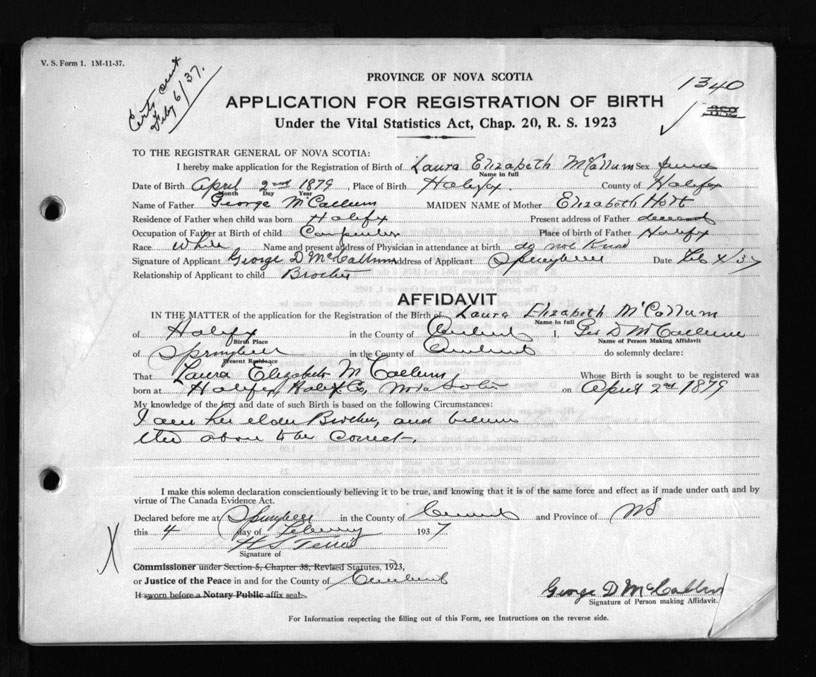 V. S. Form 1. 1M-11-37.
Feby 6/37.
PROVINCE OF NOVA SCOTIA
1340
APPLICATION FOR REGISTRATION OF BIRTH
Under the Vital Statistics Act, Chap. 20, R. S. 1923
TO THE REGISTRAR GENERAL OF NOVA SCOTIA:
I hereby make application for the Registration of Birth of Laura Elizabeth McCallum Sex
Name in full
Date of Birth April 2nd 1879, Place of Birth Halifax. County of Halifax
Month Day Year
Name of Father George McCallum MAIDEN NAME of Mother Elizabeth Holt
Residence of Father when child was born Halifax Present address of Father deceased
Occupation of Father at Birth of child Carpenter Place of birth of Father Halifax
Race White Name and present address of Physician in attendance at birth do not Know
Signature of Applicant George D McCallum Address of Applicant Springhill Date Feb 4/37
Relationship of Applicant to child Brother
AFFIDAVIT
IN THE MATTER of the application for the Registration of the Birth of Laura Elizabeth McCallum
Name in full
of Halifax in the County of Cumberland I, Geo D McCallum
Birth Place Name of Person Making Affidavit
of Springhill in the County of Cumberland do solemnly declare:
Present Residence
That Laura Elizabeth McCallum Whose Birth is sought to be registered was
born at Halifax, Halifax Co, Nova Scotia on April 2nd 1879
My knowledge of the fact and date of such Birth is based on the following Circumstances:
I am her elder Brother, and believe
the above to be correct.
I make this solemn declaration conscientiously believing it to be true, and knowing that it is of the same force and effect as if made under oath and by
virtue of The Canada Evidence Act.
Declared before me at Springhill in the County of Cumberland and Province of NS
this 4 day of February 1937
Signature of
Commissioner under Section 5, Chapter 38, Revised Statutes, 1923,
or Justice of the Peace in and for the County of Cumberland
If sworn before a Notary Public affix seal.
George D McCallum
Signature of Person making Affidavit.
For Information respecting the filling out of this Form, see Instructions on the reverse side.